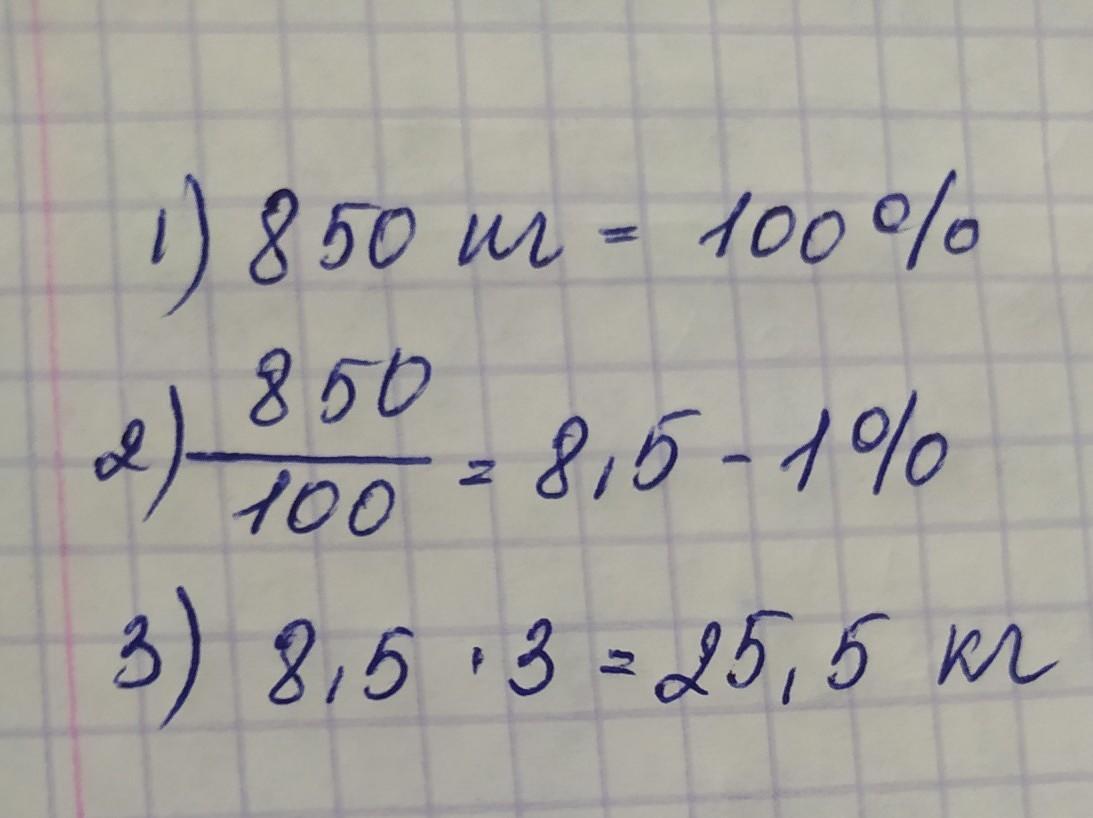 1) 850 кг = 100%
2) 850/100 = 8,5 - 1%
3) 8,5 · 3 = 25,5 кг